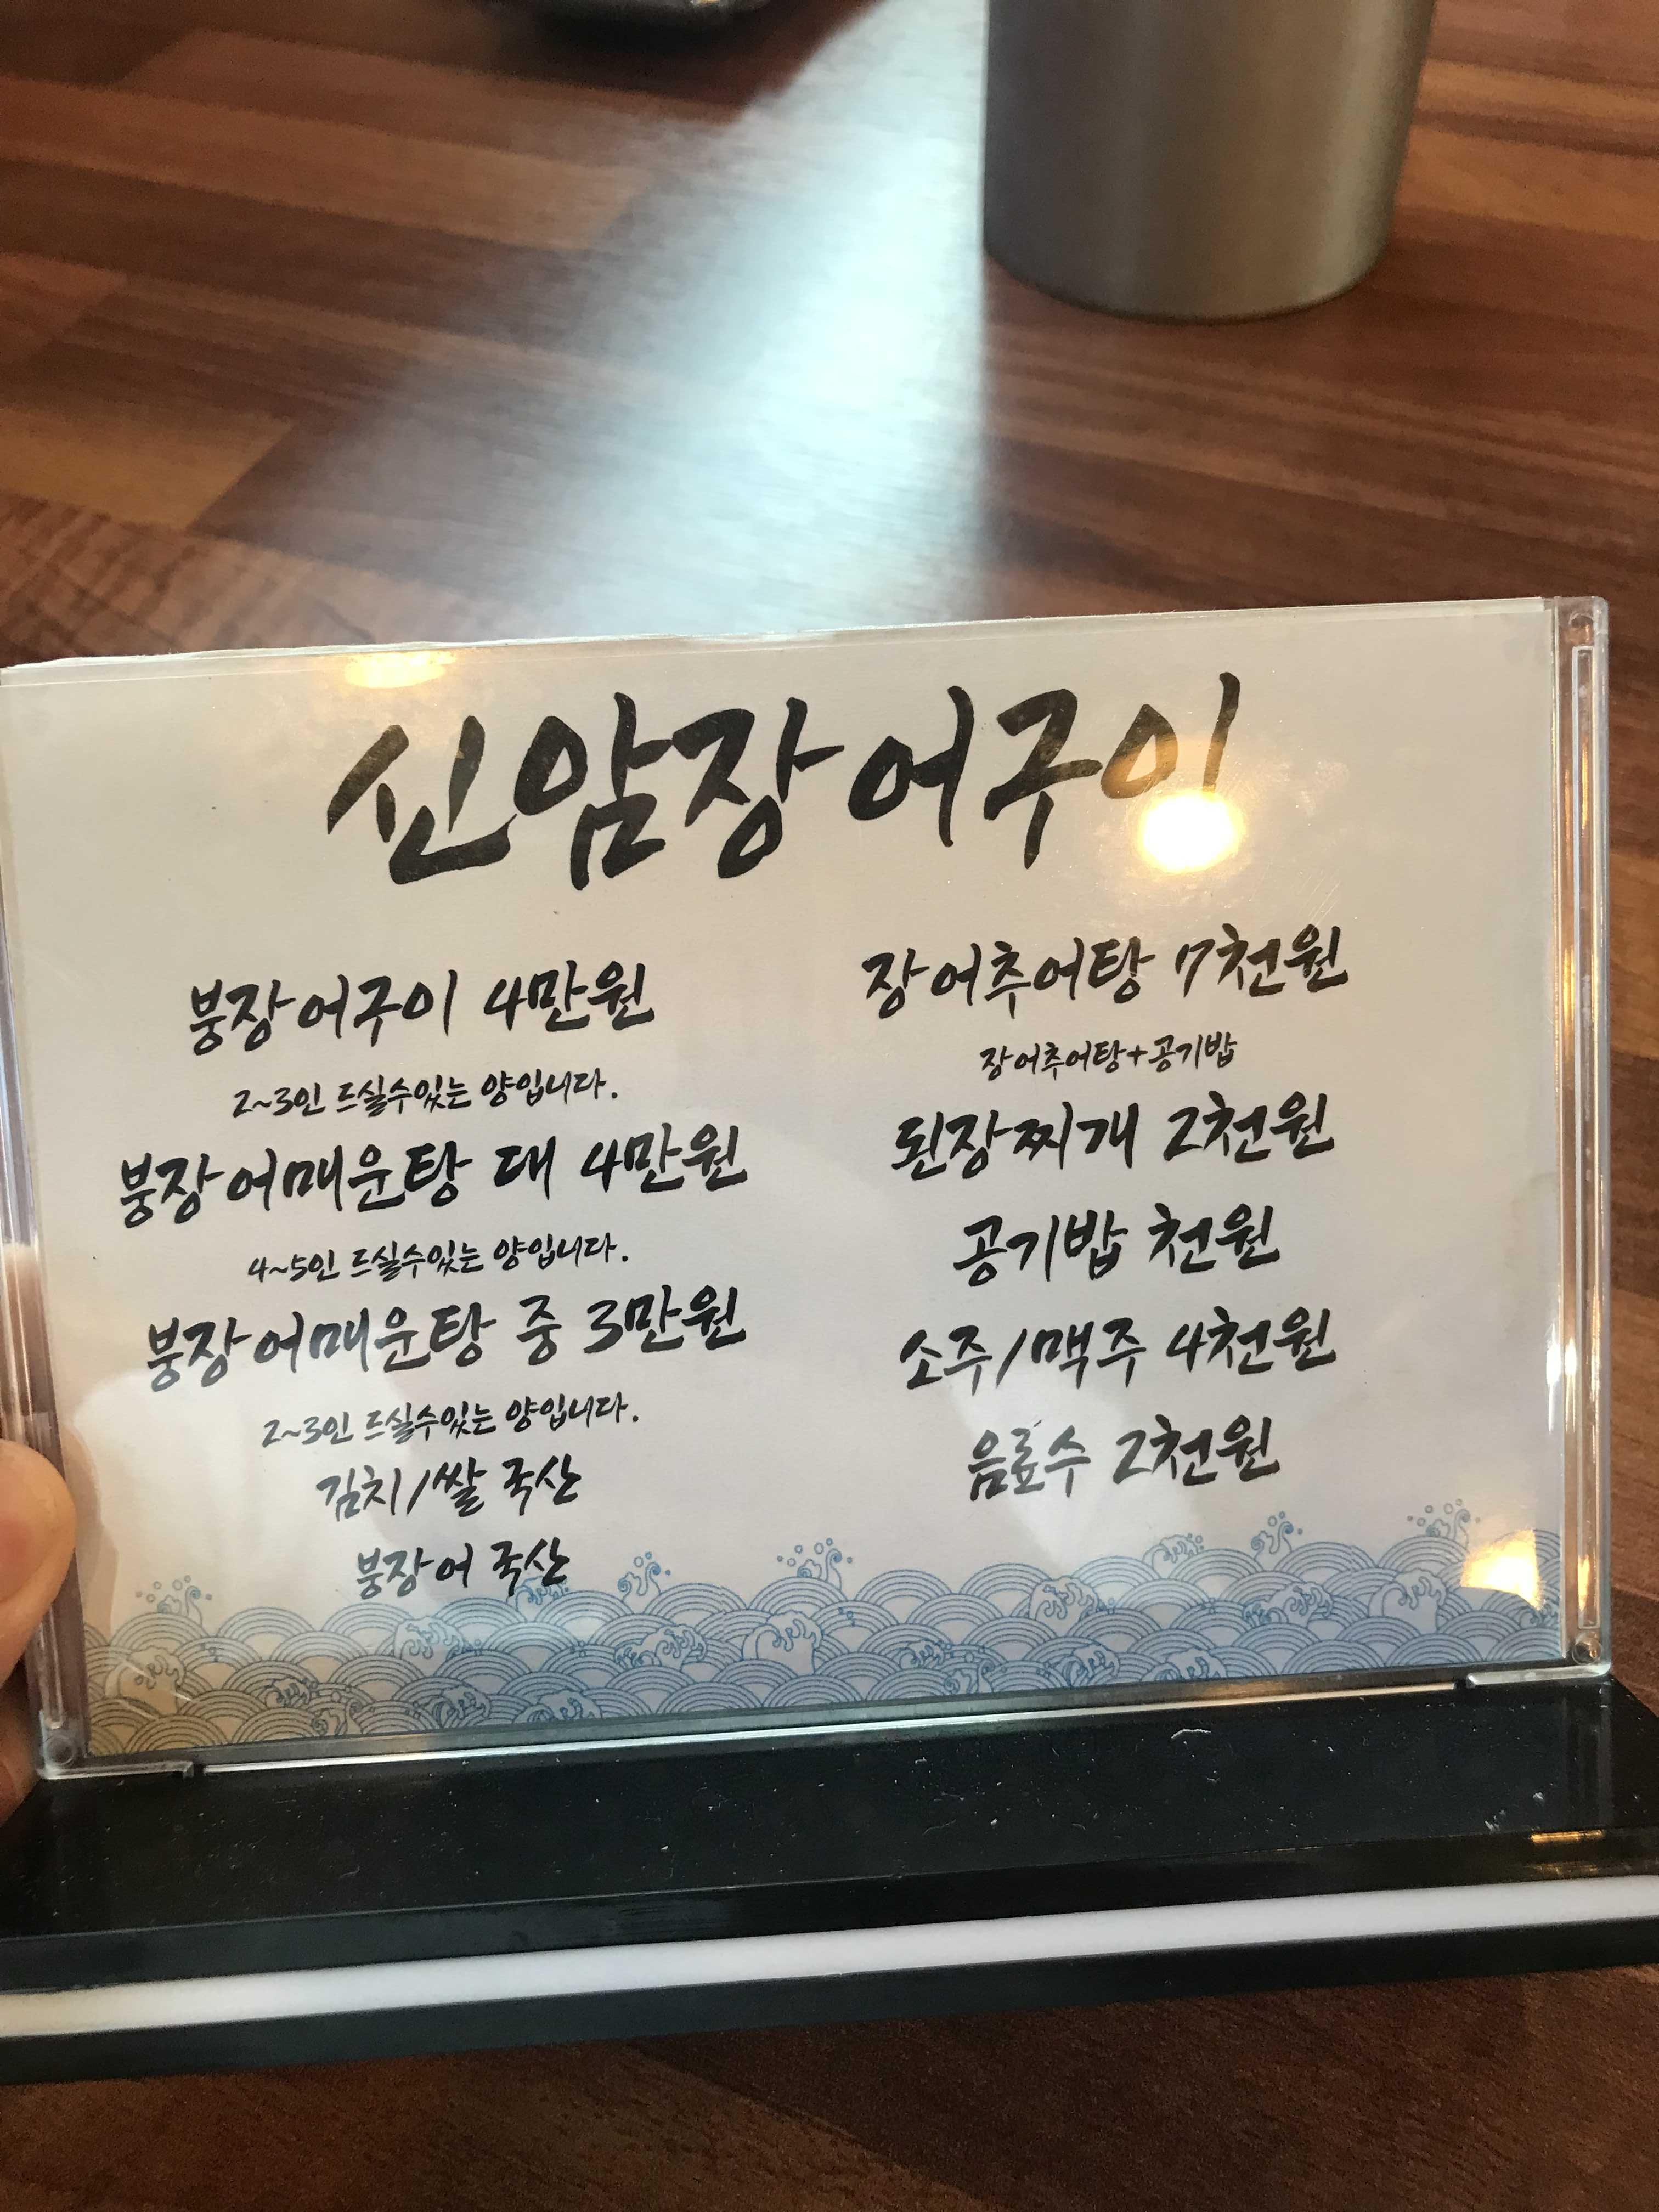 신암장어구이
붕장어구이 4만원
2~3인 드실수있는 양입니다.
붕장어매운탕 대 4만원
4~5인 드실수있는 양입니다.
붕장어매운탕 중 3만원
2~3인 드실수있는 양입니다.
김치/쌀 국산
붕장어 국산
장어추어탕 7천원
장어추어탕+공기밥
된장찌개 2천원
공기밥 천원
소주/맥주 4천원
음료수 2천원